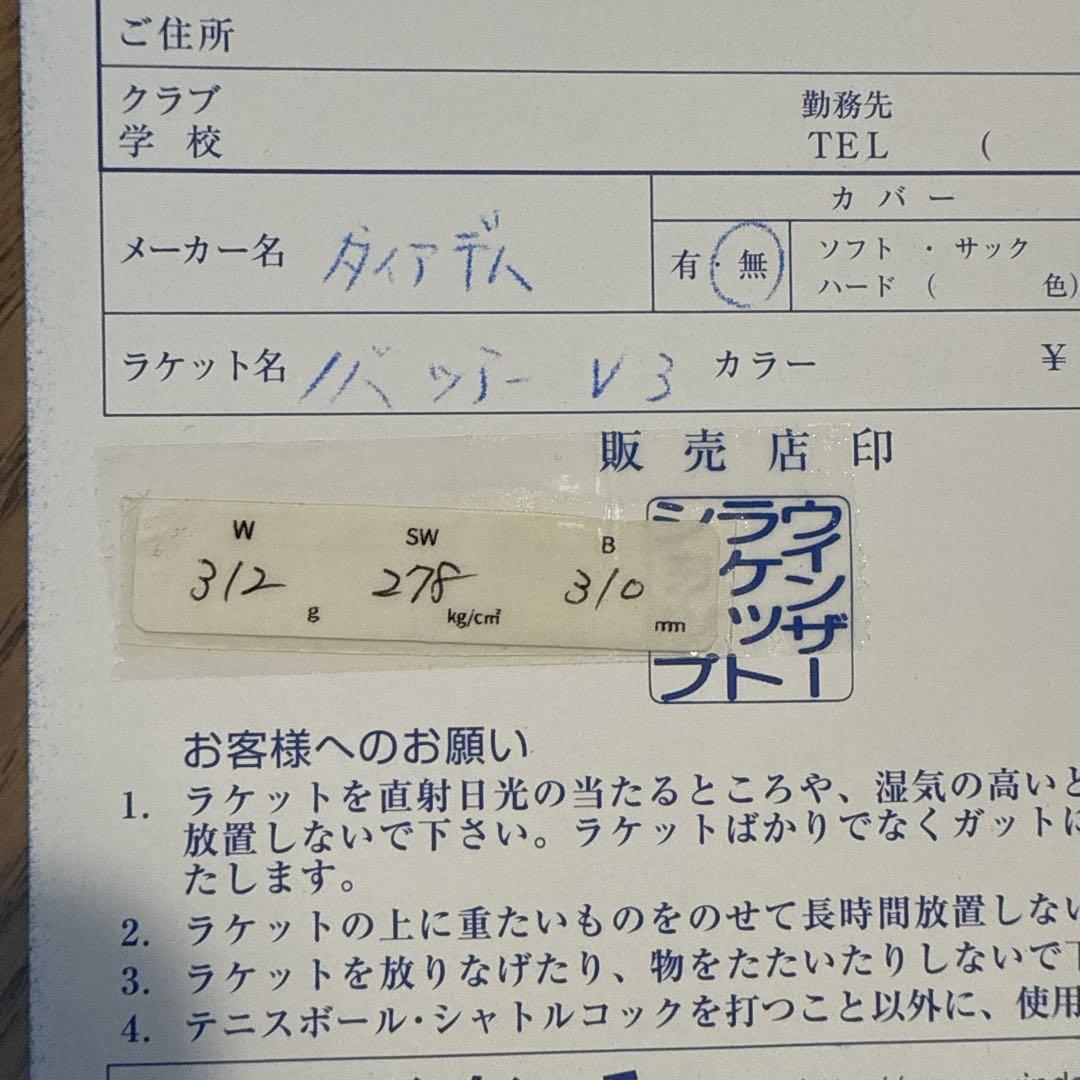 ご住所
クラブ
学 校
勤務先
TEL (
メーカー名 ダイアデム
カ バ ー
有・無
ソフト ・ サック
ハード ( 色)
ラケット名 ノバ ツアー V3 カラー ¥
販 売 店 印
W 312 g
SW 278 kg/c㎡
B 310 mm
ウインザー
ラケット
お客様へのお願い
1. ラケットを直射日光の当たるところや、湿気の高いと
放置しないで下さい。ラケットばかりでなくガットに
たします。
2. ラケットの上に重たいものをのせて長時間放置しない
3. ラケットを放りなげたり、物をたたいたりしないで下
4. テニスボール・シャトルコックを打つこと以外に、使用